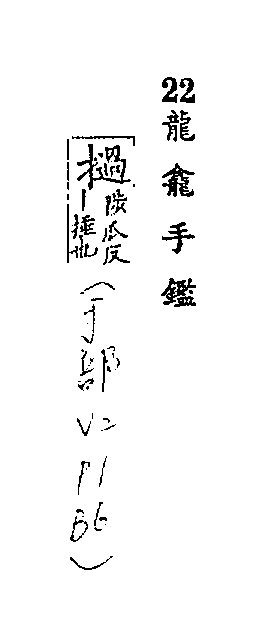 22龍龕手鑑
撾陟瓜反丨捶也
(手部 V2 P1 B6)